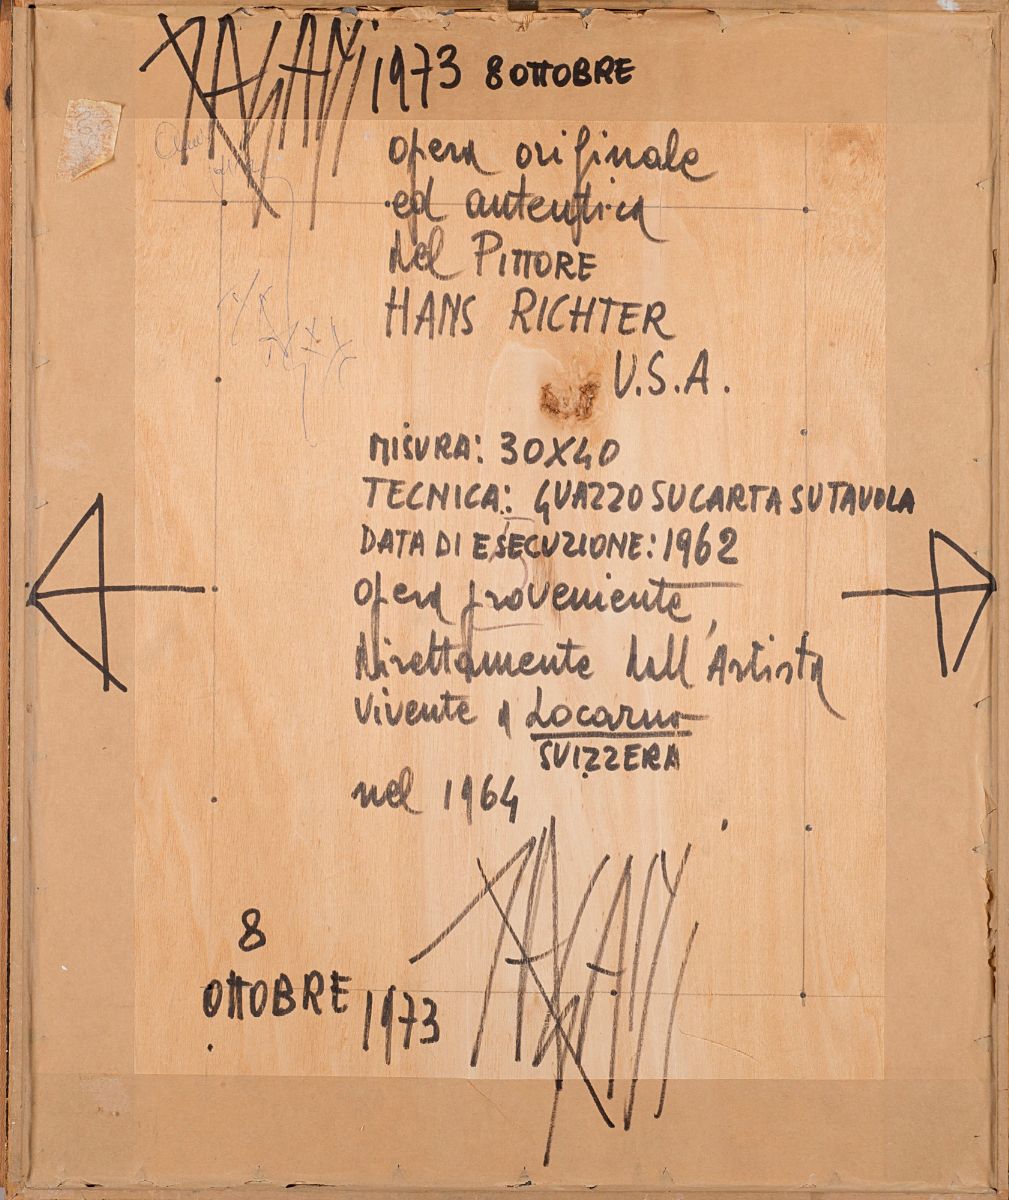 PAGANI 1973 8 OTTOBRE
opera originale
ed autentica
del PITTORE
HANS RICHTER
U.S.A.
MISURA: 30X40
TECNICA: GUAZZO SU CARTA SU TAVOLA
DATA DI ESECUZIONE: 1962
opera proveniente
direttamente dall'Artista
vivente a Locarno
SVIZZERA
nel 1964
PAGANI
8
OTTOBRE 1973